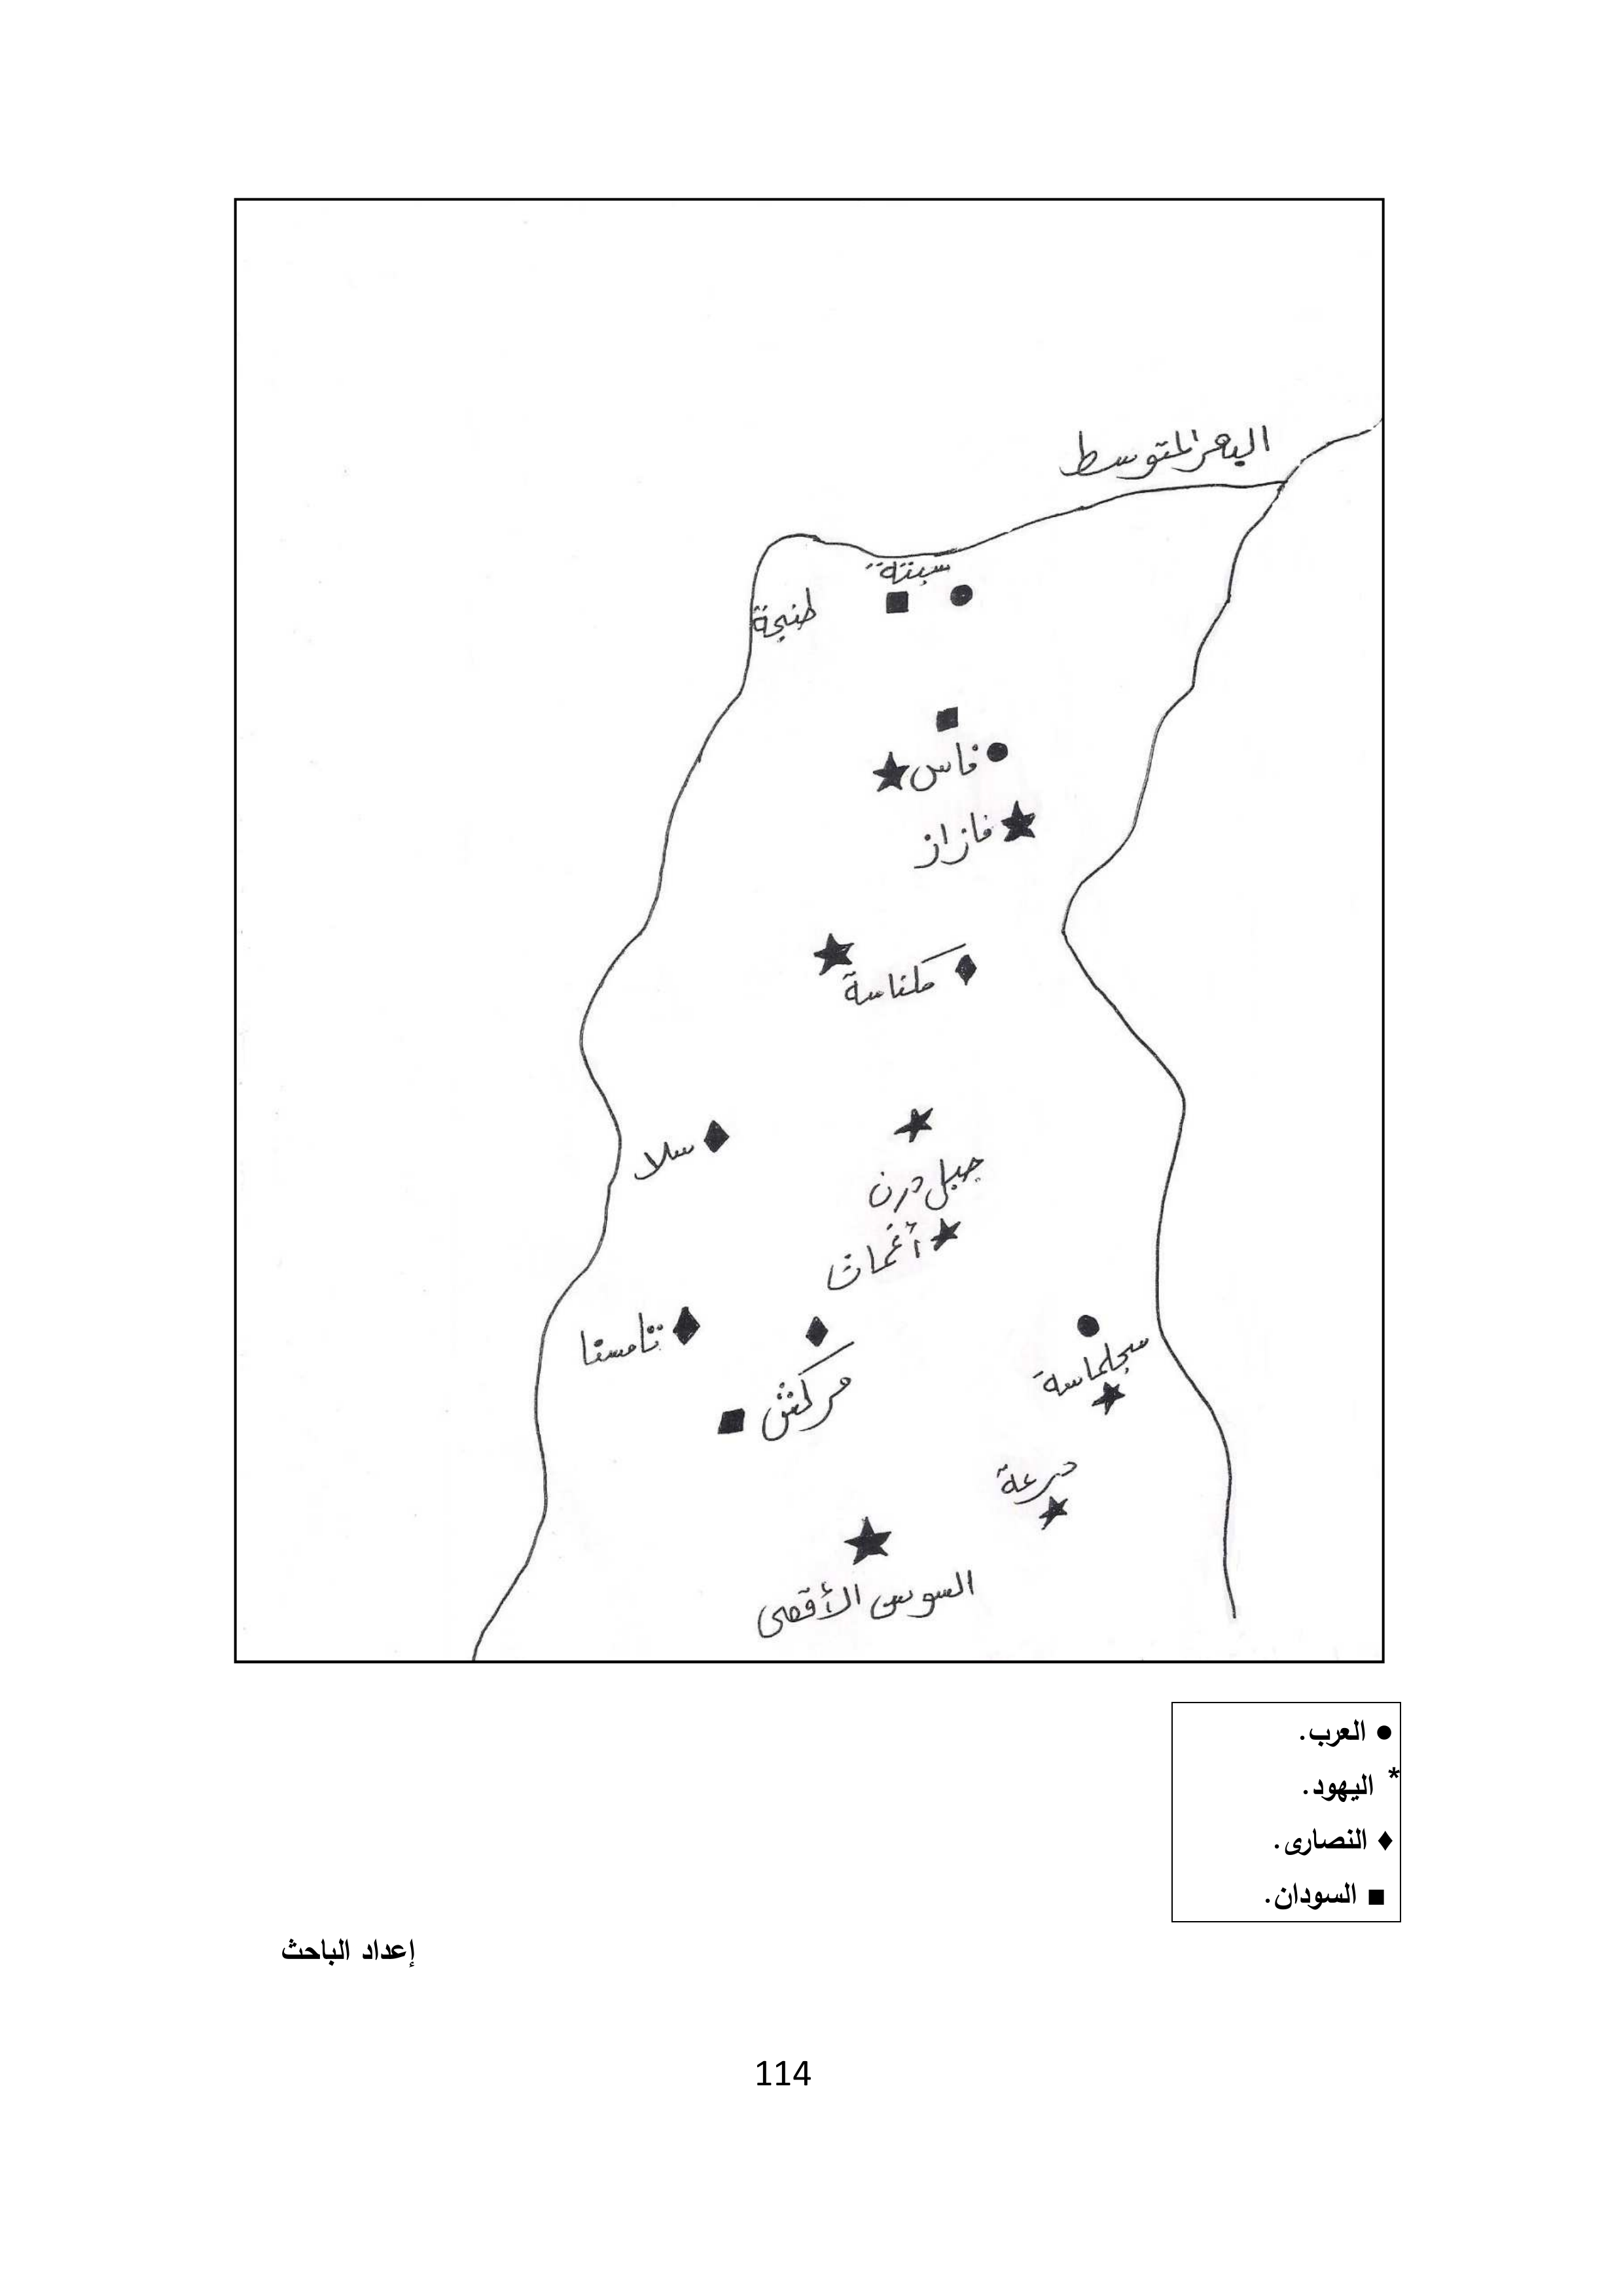 البحر المتوسط
سبتة
طنجة
فاس
فازاز
مكناسة
سلا
جبل درن
أغمات
تامسنا
مركش
سجلماسة
درعة
السوس الأقصى
● العرب.
* اليهود.
♦ النصارى.
■ السودان.
إعداد الباحث
114